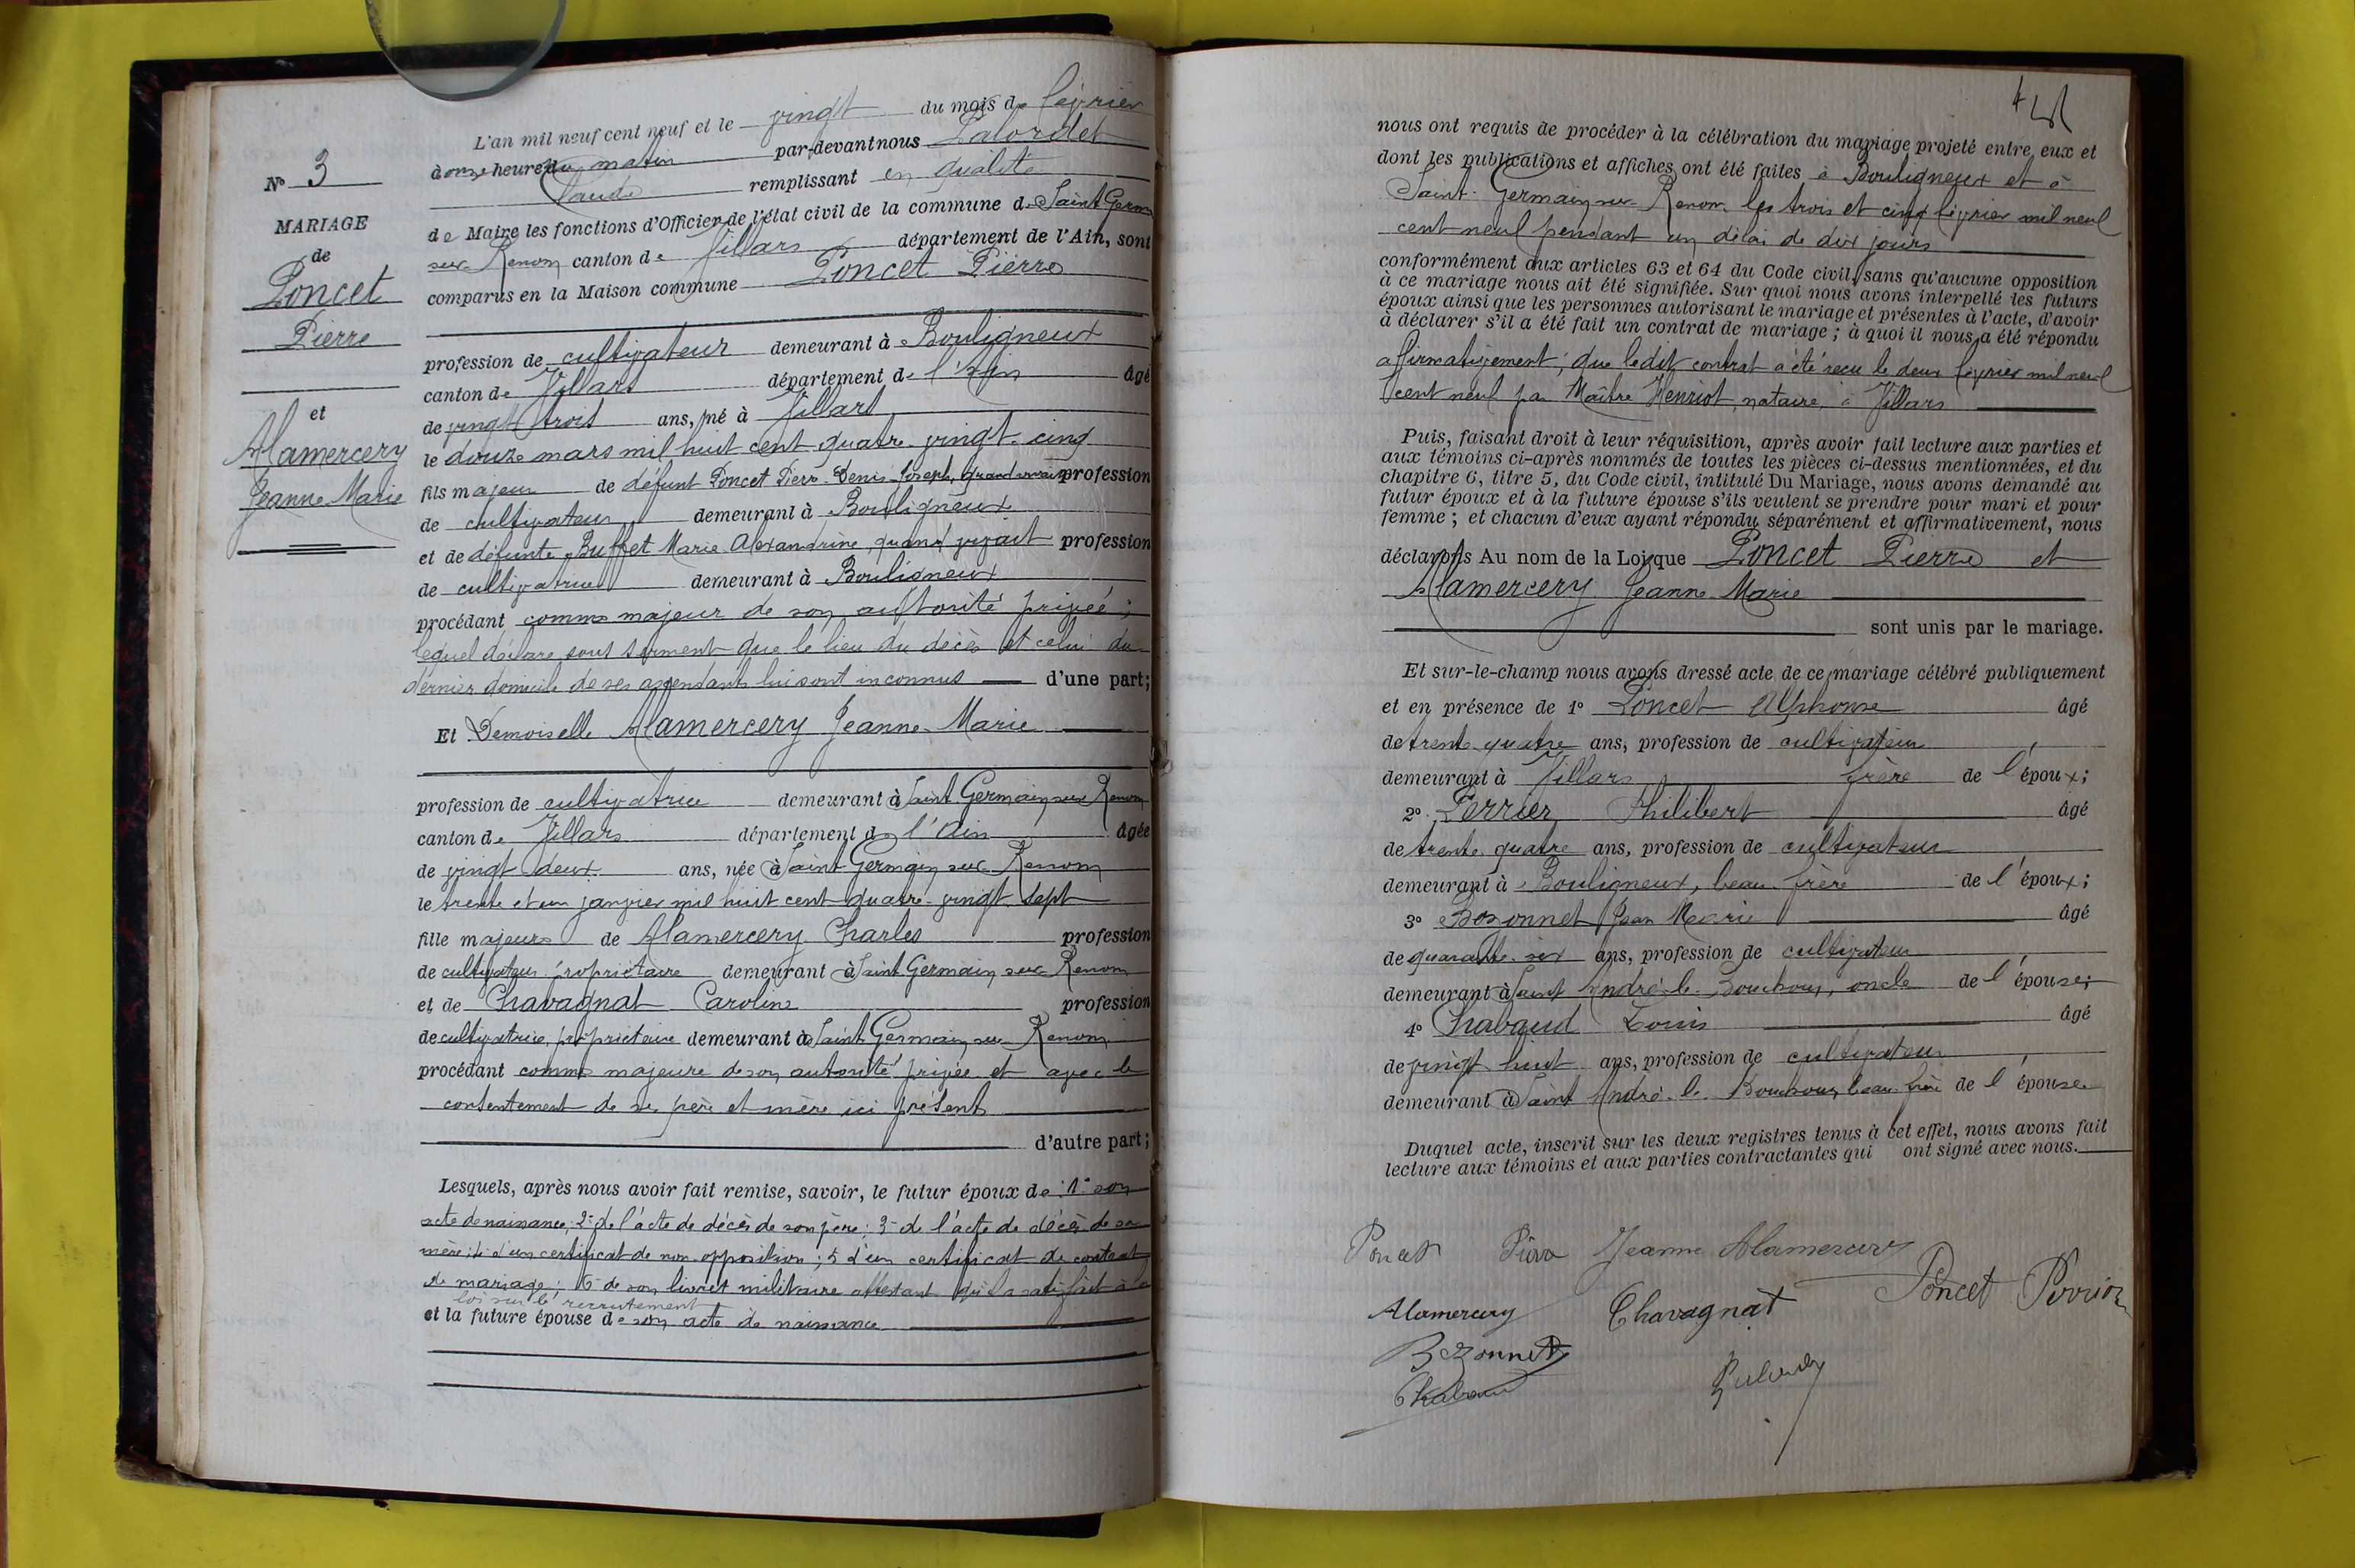 N° 3
MARIAGE
de
Poncet
Pierre
et
Alamercery
Jeanne Marie
L'an mil neuf cent neuf et le vingt du mois de février
onze heure du matin par-devant nous Palordet
Claude remplissant en qualité
de Maire les fonctions d'Officier de l'état civil de la commune de Saint Germain
sur Renom canton de Villars département de l'Ain, sont
comparus en la Maison commune Poncet Pierre
profession de cultivateur demeurant à Bouligneux
canton de Villars département de l'Ain âgé
de vingt trois ans, né à Villars
le douze mars mil huit cent quatre-vingt-cinq
fils majeur de défunt Poncet Pierre Denis Joseph, quand vivait profession
de cultivateur demeurant à Bouligneux
et de défunte Buffet Marie Alexandrine, quand vivait profession
de cultivatrice demeurant à Bouligneux
procédant comme majeur de son autorité privée;
lequel déclare sous serment que le lieu du décès et celui du
dernier domicile de ses ascendants lui sont inconnus d'une part;
Et Demoiselle Alamercery Jeanne-Marie
profession de cultivatrice demeurant à Saint Germain sur Renom
canton de Villars département de l'Ain âgée
de vingt deux ans, née à Saint Germain sur Renom
le trente et un janvier mil huit cent quatre-vingt-sept
fille majeure de Alamercery Charles profession
de cultivateur propriétaire demeurant à Saint Germain sur Renom
et de Chavagnat Caroline profession
de cultivatrice propriétaire demeurant à Saint Germain sur Renom
procédant comme majeure de son autorité privée et avec le
consentement de ses père et mère ici présents
d'autre part;
Lesquels, après nous avoir fait remise, savoir, le futur époux de : 1° son
acte de naissance; 2° de l'acte de décès de son père; 3° de l'acte de décès de sa
mère; 4° d'un certificat de non opposition; 5° d'un certificat de contrat
de mariage; 6° de son livret militaire attestant qu'il a satisfait à la
loi sur le recrutement
et la future épouse de son acte de naissance
nous ont requis de procéder à la célébration du mariage projeté entre eux et
dont les publications et affiches ont été faites à Bouligneux et à
Saint-Germain sur Renom les trois et cinq février mil neuf
cent neuf pendant un délai de dix jours
conformément aux articles 63 et 64 du Code civil, sans qu'aucune opposition
à ce mariage nous ait été signifiée. Sur quoi nous avons interpellé les futurs
époux ainsi que les personnes autorisant le mariage et présentes à l'acte, d'avoir
à déclarer s'il a été fait un contrat de mariage ; à quoi il nous a été répondu
affirmativement; que ledit contrat a été reçu le deux février mil neuf
cent neuf par Maître Henriot, notaire, à Villars
Puis, faisant droit à leur réquisition, après avoir fait lecture aux parties et
aux témoins ci-après nommés de toutes les pièces ci-dessus mentionnées, et du
chapitre 6, titre 5, du Code civil, intitulé Du Mariage, nous avons demandé au
futur époux et à la future épouse s'ils veulent se prendre pour mari et pour
femme ; et chacun d'eux ayant répondu séparément et affirmativement, nous
déclarons Au nom de la Loi que Poncet Pierre et
Alamercery Jeanne-Marie
sont unis par le mariage.
Et sur-le-champ nous avons dressé acte de ce mariage célébré publiquement
et en présence de 1° Poncet Alphonse âgé
de trente-quatre ans, profession de cultivateur
demeurant à Villars frère de l'époux;
2° Perrier Philibert âgé
de trente-quatre ans, profession de cultivateur
demeurant à Bouligneux, beau-frère de l'époux;
3° Bozonnet Jean Marie âgé
de quarante-six ans, profession de cultivateur
demeurant à Saint André-le-Bouchoux, oncle de l'épouse;
4° Chabaud Louis âgé
de vingt huit ans, profession de cultivateur
demeurant à Saint André-le-Bouchoux, beau frère de l'épouse
Duquel acte, inscrit sur les deux registres tenus à cet effet, nous avons fait
lecture aux témoins et aux parties contractantes qui ont signé avec nous.
Poncet Pierre Jeanne Alamercery
Alamercery Chavagnat Poncet Perrier
Bozonnet
Chabaud